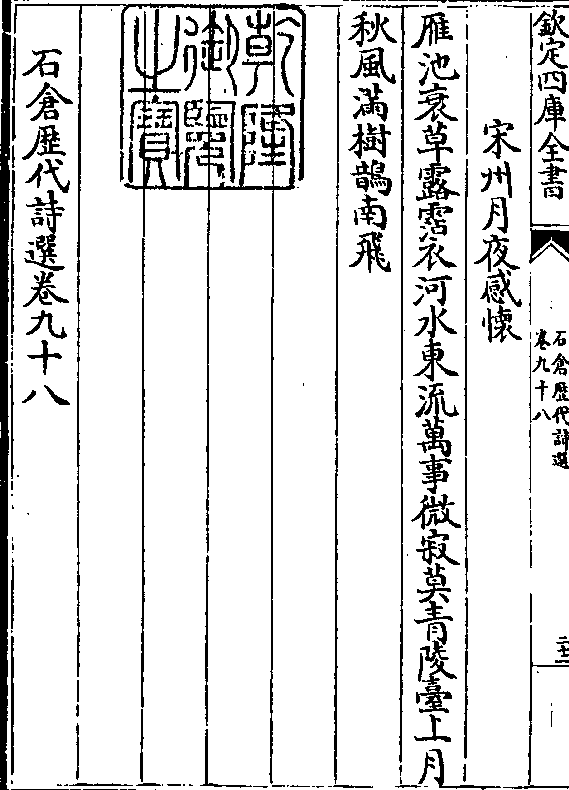 欽定四庫全書
石倉歷代詩選
卷九十八
宋州月夜感懷
雁池衰草露霑衣河水東流萬事微寂莫青陵臺上月
秋風滿樹鵲南飛
乾隆
御覽
之寶
石倉歷代詩選卷九十八